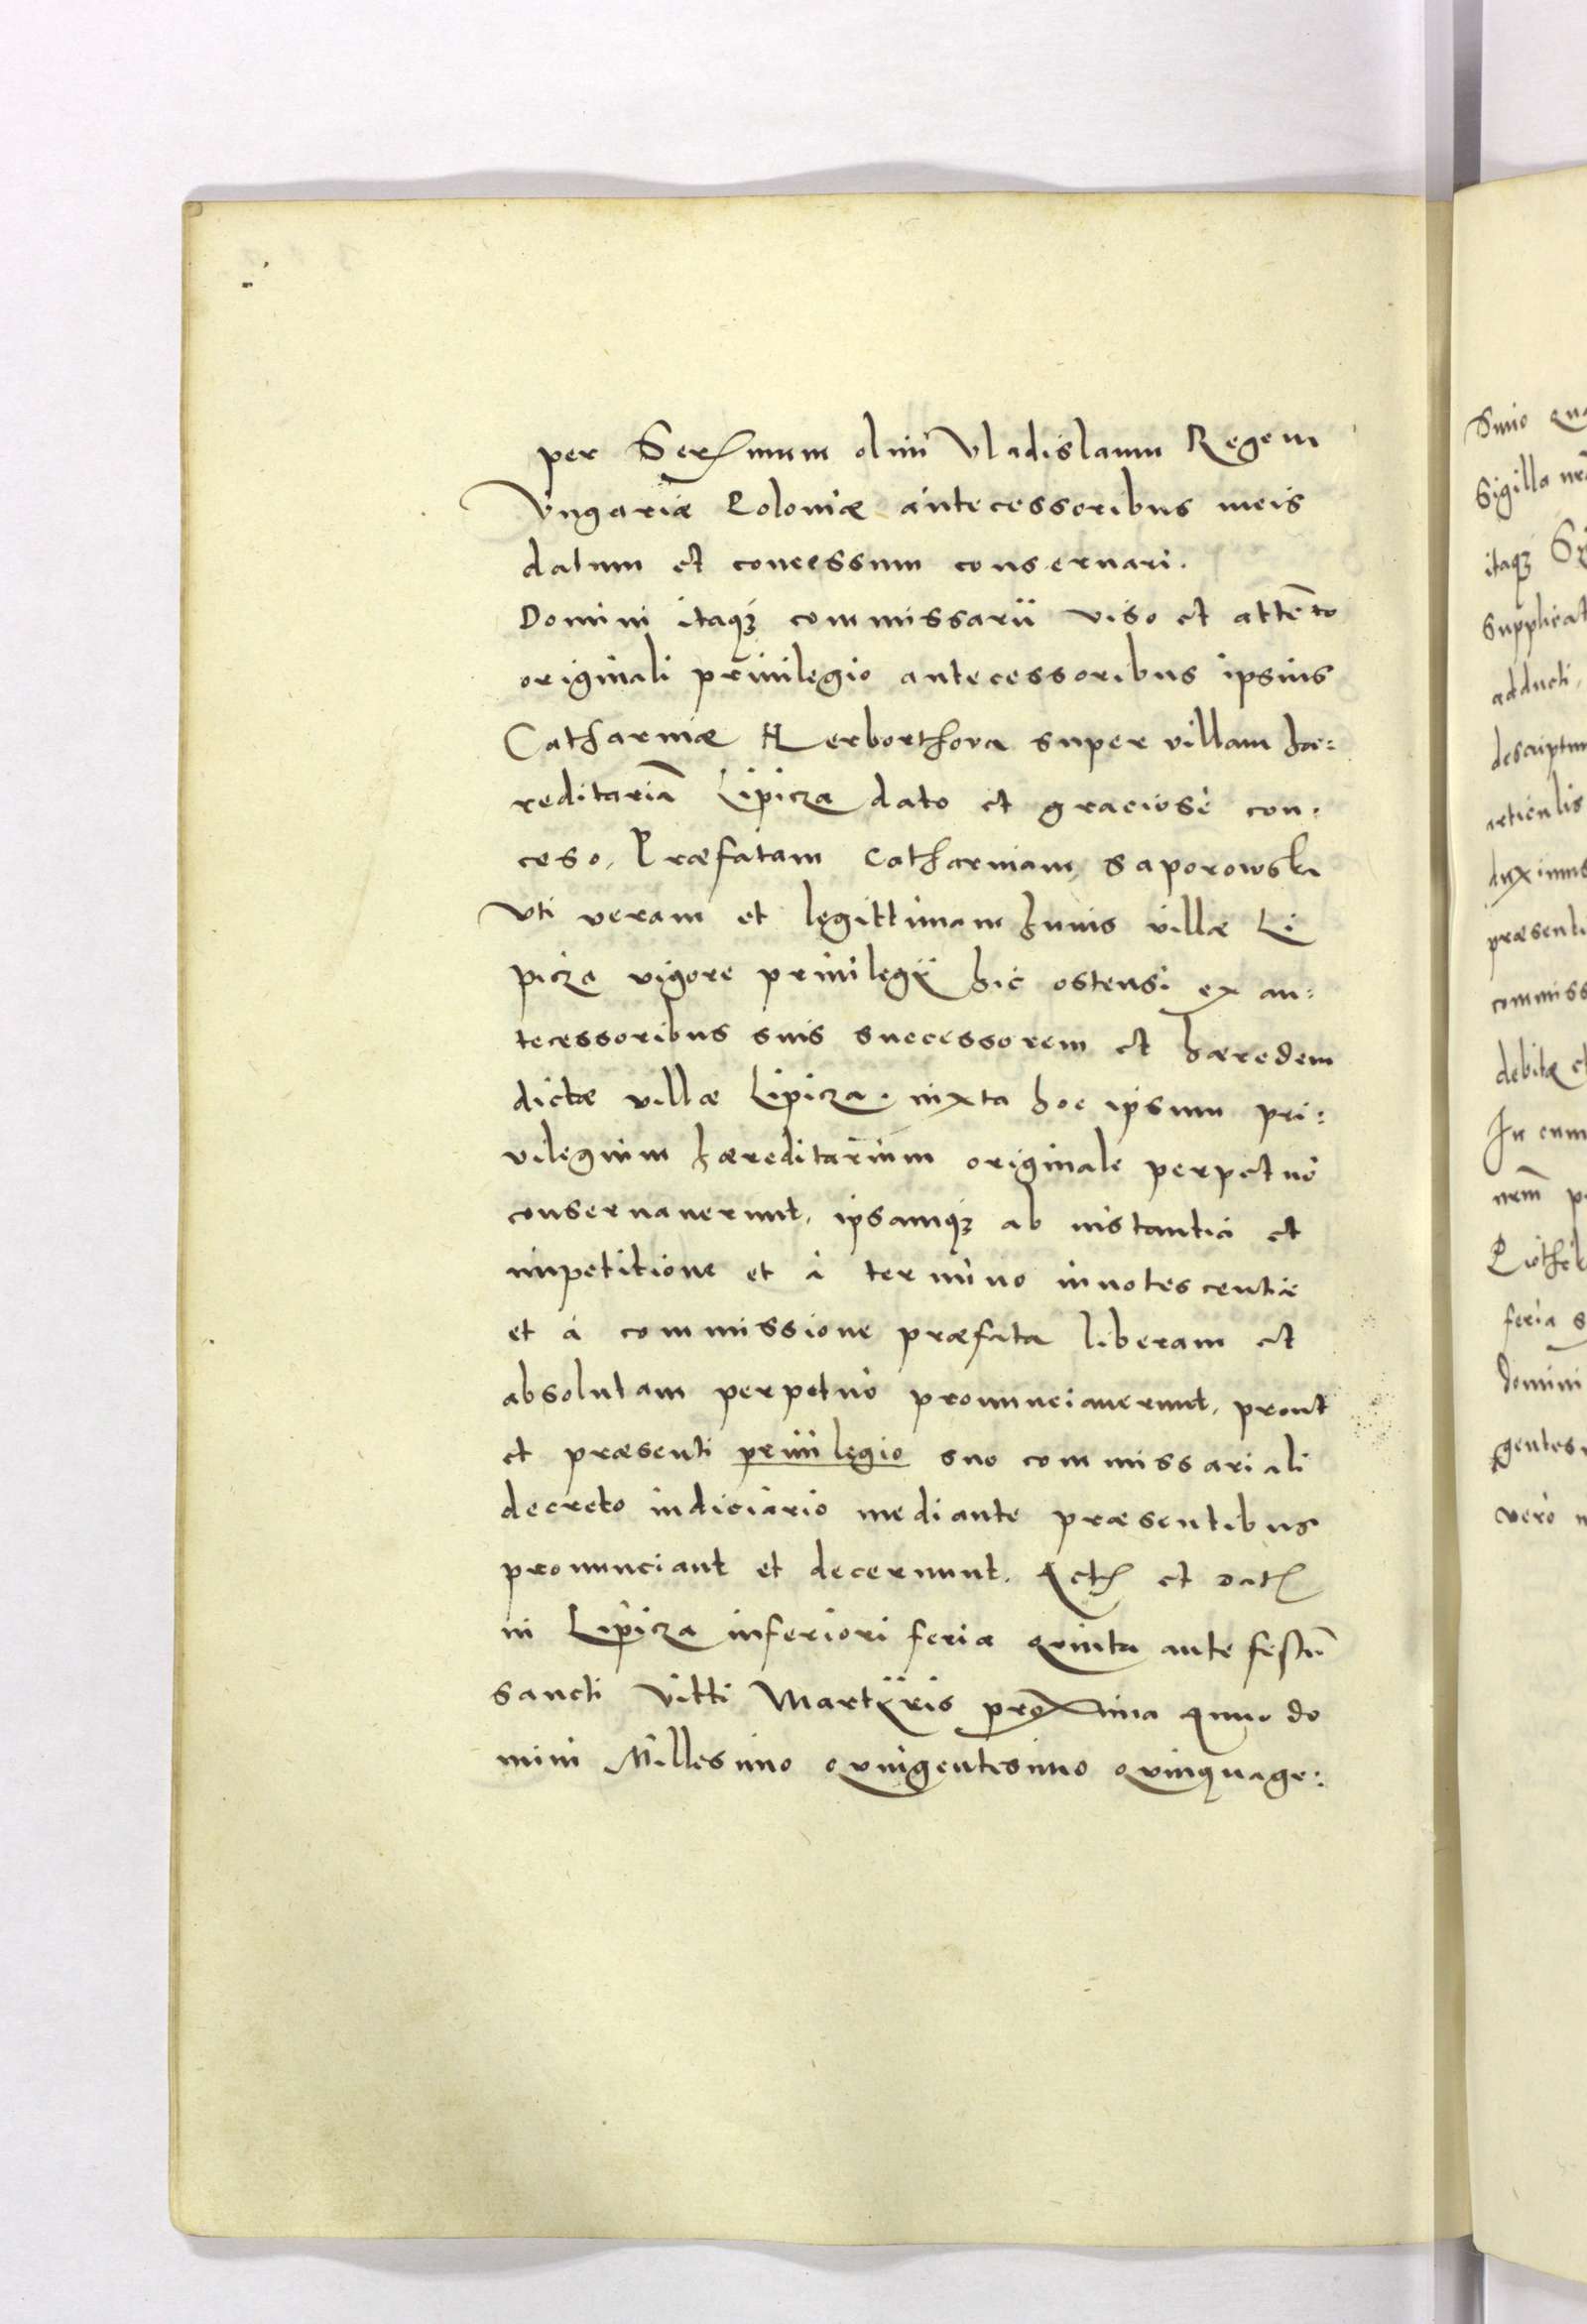 per Ser mum olim Vladislaum Regem
Vngariæ Poloniæ antecessoribus meis
datum et concessum conseruari.
Domini itaq̃ commissarii viso et attẽto
originali priuilegio antecessoribus ipsius
Catharinæ Herborthova super villam hæ:
reditariã Lipicza dato et graciosè con:
ceso. Præfatam Catharinam Saporowska
Vti veram et legittimam huius villæ Li
picza vigore priuilegÿ hic ostensi ex an:
tecessoribus suis successorem et hæredem
dictæ villæ Lipicza. iuxta hoc ipsum pri:
vilegium hæreditarium originale perpetuò
conseruauerunt, ipsamq̃ ab instantia et
impetitione et à termino innotescentiæ
et à commissione præfata liberam et
absolutam perpetuò pronunciauerunt, prout
et præsenti priuilegio suo commissariali
decreto iudiciario mediante præsentibus
pronunciant et decernunt. Act et Dat
in Lipicza inferiori feria quinta ante festũ
Sancti Vitti Martÿris proxima anno do
mini Millesimo quingentesimo quinquage: